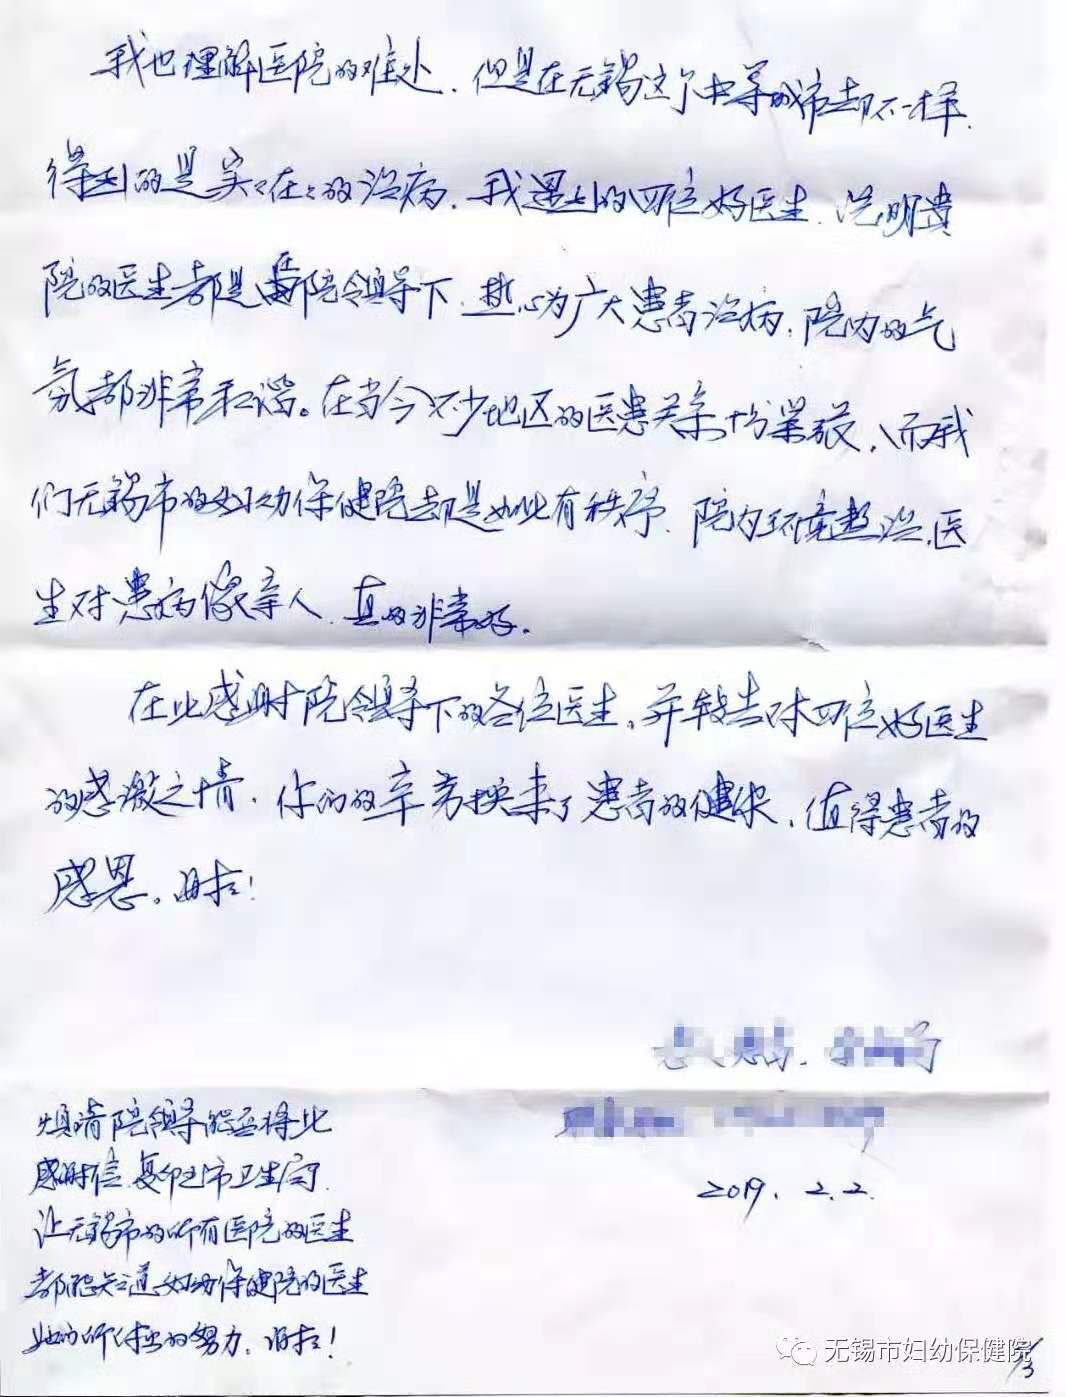 我也理解医院的难处.但是在无锡这个中等城市却不一样.
得到的是实々在々的治病.我遇到的四位好医生.说明贵
院的医生都是在院领导下.热心为广大患者治病.院内的气
氛都非常和谐。在当今不少地区的医患关系十分紧张,而我
们无锡市的妇幼保健院却是如此有秩序.院内环境整洁.医
生对患病像亲人.真的非常好.
在此感谢院领导下的各位医生.并转告对四位好医生
的感激之情.你们的辛劳换来了患者的健康.值得患者的
感恩。谢谢!
烦请院领导能否将此
感谢信.复印到市卫生局.
让无锡市的所有医院的医生
都能知道妇幼保健院的医生
她们所付出的努力.谢谢!
2019.2.2.
无锡市妇幼保健院